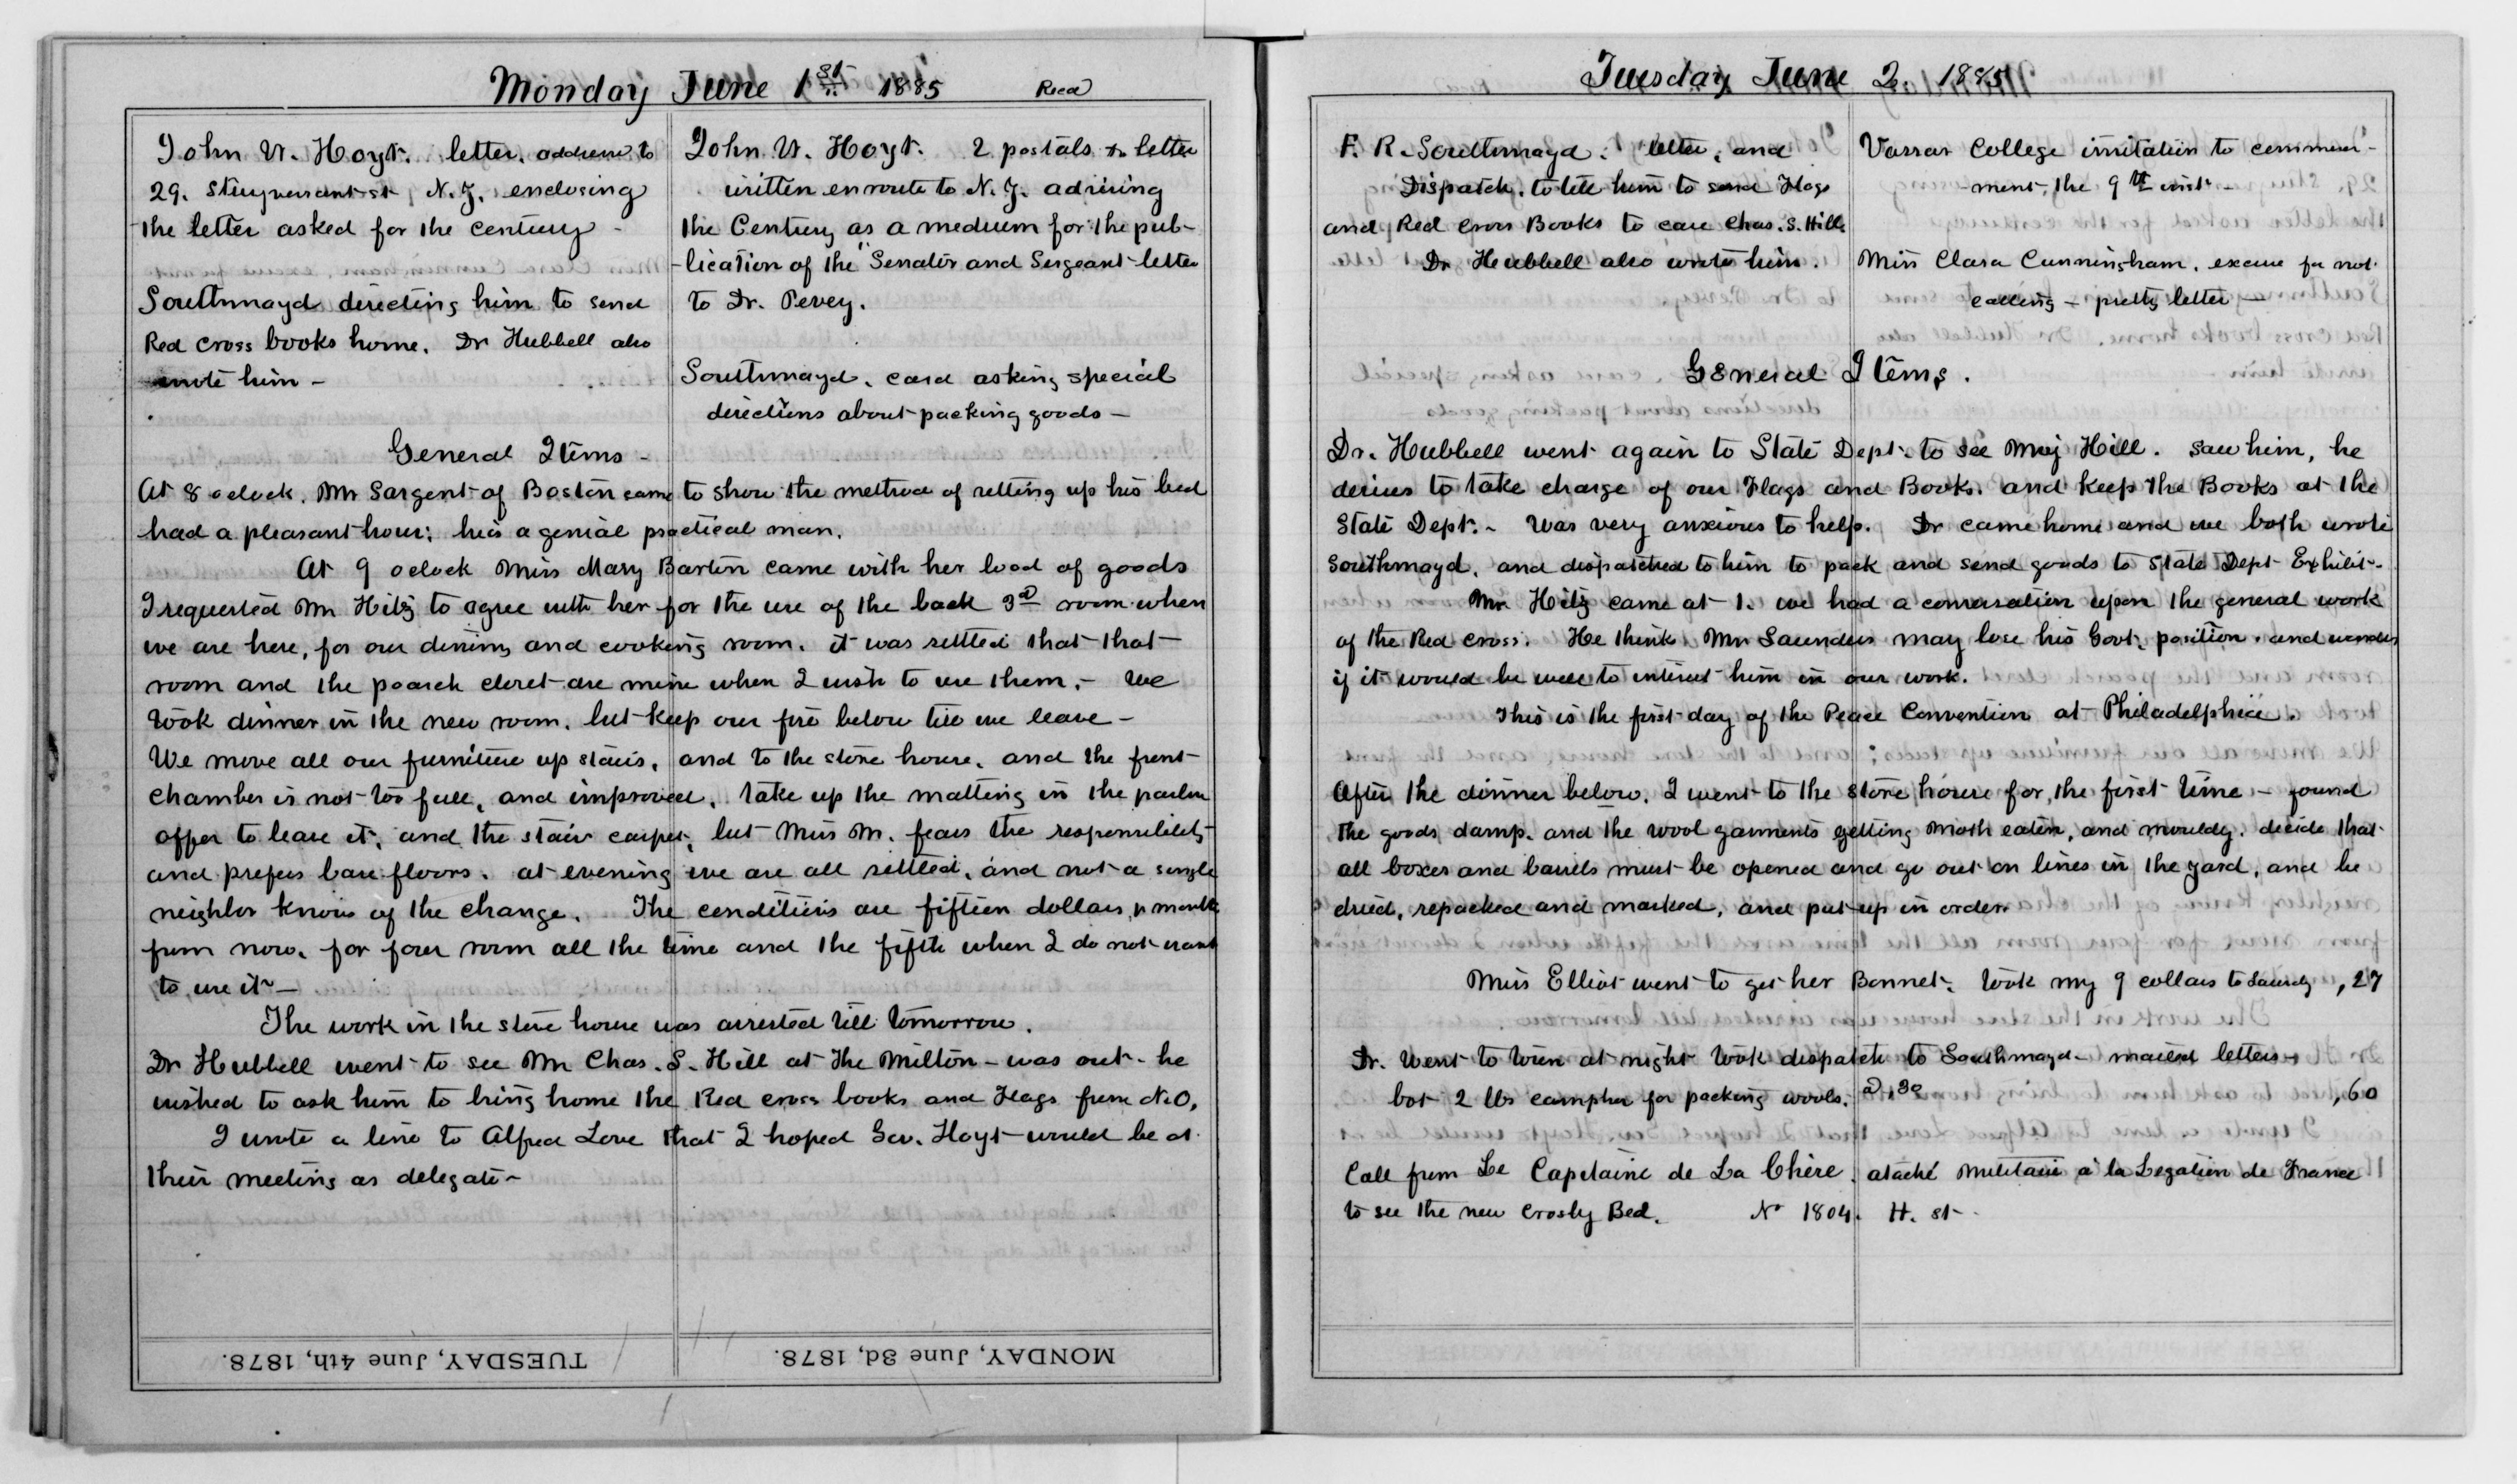 Monday June 1st 1885 Recd
John W. Hoyt. letter. address to
29. Stuyvensant st N.Y. enclosing
the letter asked for the century -
Southmayd directing him to send
Red Cross books home. Dr Hubbell also
wrote him -
John W. Hoyt. 2 postals & letter
written enroute to N.Y. advising
the Century as a medium for the pub-
-lication of the "Senator and Sergeant letter
to Dr. Pevey.
Southmayd. card asking special
directions about packing goods -
General Items -
At 8 oclock. Mr Sargent of Boston came to show the method of setting up his bed
had a pleasant hour; he is a genial practical man.
At 9 oclock Miss Mary Barton came with her load of goods
I requested Mr Hitz to agree with her for the use of the back 3d room when
we are here, for our dining and cooking room. it was settled that that
room and the poarch closet are mine when I wish to use them. - We
took dinner in the new room. but keep our fire below till we leave -
We move all our furniture up stairs, and to the store house. and the front
chamber is not too full, and improved. take up the matting in the parlor
offer to leave it, and the stair carpet, but Miss M. fears the responsibility
and prefers bare floors. at evening we are all settled. and not a single
neighbor knows of the change. The conditions are fifteen dollars pr month
from now. for four room all the time and the fifth when I do not want
to use it -
The work in the store house was arrested till tomorrow.
Dr Hubbell went to see Mr Chas. S. Hill at the Milton - was out - he
wished to ask him to bring home the Red cross books and Flags from N.O.
I wrote a line to Alfred Love that I hoped Gov. Hoyt would be at
their meeting as delegate -
MONDAY, June 3d, 1878.
TUESDAY, June 4th, 1878.
Tuesday June 2. 1885
F. R. Southmayd. letter, and
Dispatch. to tell him to send Flags
and Red Cross Books to care Chas. S. Hill.
Dr Hubbell also wrote him.
Vassar College invitation to commence-
ment, the 9th inst -
Miss Clara Cunningham. excuse for not
calling - pretty letter -
General Items.
Dr. Hubbell went again to State Dept. to see Maj Hill. saw him, he
desires to take charge of our Flags and Books. and keep the Books at the
State Dept. - Was very anxious to help. Dr came home and we both wrote
Southmayd. and dispatched to him to pack and send goods to State Dept Exhibit -
Mr Hitz came at 1. we had a conversation upon the general work
of the Red Cross. He thinks Mr Saunders may lose his Govt. position. and wonders
if it would be well to interest him in our work.
This is the first day of the Peace Convention at Philadelphia.
After the dinner below. I went to the store house for the first time - found
the goods damp. and the wool garments getting moth eaten, and mouldy. decide that
all boxes and barrels must be opened and go out on lines in the yard, and be
dried, repacked and marked, and put up in order.
Miss Elliot went to get her Bonnet. took my 9 collars to Laundy ,27
Dr. Went to town at night took dispatch to Southmayd - mailed letters -
bot 2 lbs camphor for packing wools. @ ,30 ,60
Call from Le Capitaine de La Chère. ataché militaire à la Legation de France
to see the new Crosby Bed. No 1804. H. st -